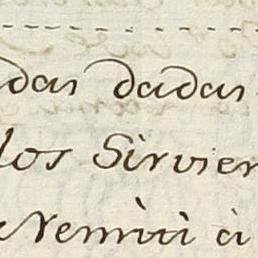 das dadas
los Sirvier
Nemiti a